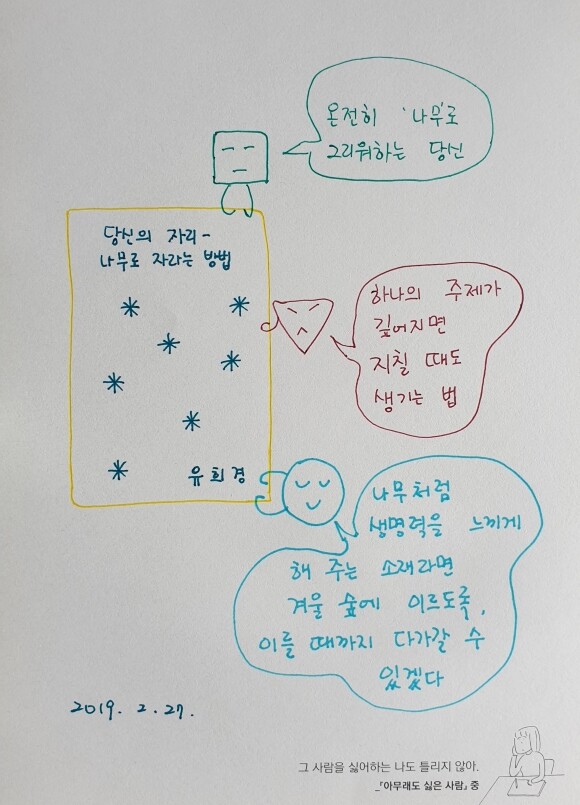 온전히 '나무'로
그리워하는 당신
당신의 자리-
나무로 자라는 방법
유희경
하나의 주제가
깊어지면
지칠 때도
생기는 법
나무처럼
생명력을 느끼게
해 주는 소재라면
겨울 숲에 이르도록,
이를 때까지 다가갈 수
있겠다
2019. 2. 27.
그 사람을 싫어하는 나도 틀리지 않아.
_『아무래도 싫은 사람』 중